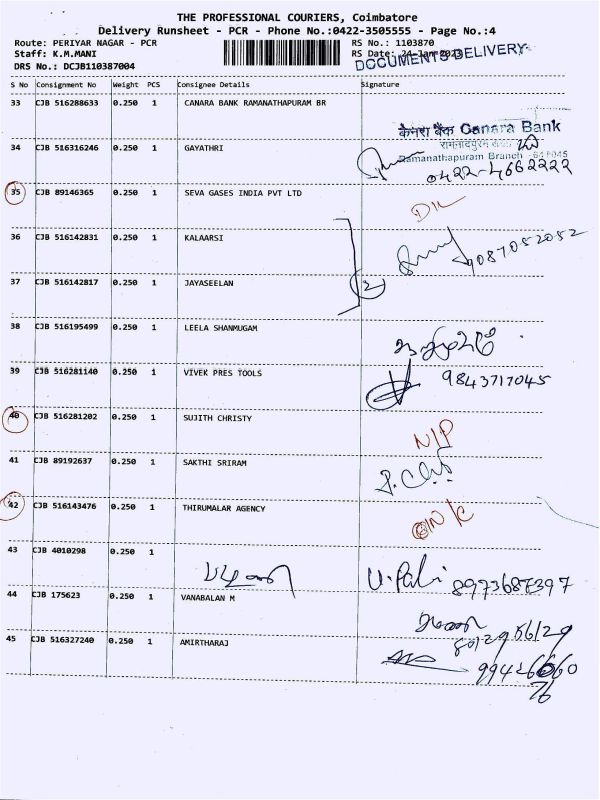 THE PROFESSIONAL COURIERS, Coimbatore
Delivery Runsheet - PCR - Phone No.:0422-3505555 - Page No.:4
Route: PERIYAR NAGAR - PCR RS No.: 1103870
Staff: K.M.MANI RS Date: 24-Jan-2023
DOCUMENTS DELIVERY
DRS No.: DCJB110387004
S No Consignment No Weight PCS Consignee Details Signature
33 CJB 516288633 0.250 1 CANARA BANK RAMANATHAPURAM BR
केनरा बैंक Canara Bank
34 CJB 516316246 0.250 1 GAYATHRI
Ramanathapuram Branch - 641045
0422-4662222
35 CJB 89146365 0.250 1 SEVA GASES INDIA PVT LTD
36 CJB 516142831 0.250 1 KALAARSI
9087052052
37 CJB 516142817 0.250 1 JAYASEELAN
2
38 CJB 516195499 0.250 1 LEELA SHANMUGAM
39 CJB 516281140 0.250 1 VIVEK PRES TOOLS
9843717045
40 CJB 516281202 0.250 1 SUJITH CHRISTY
N/P
41 CJB 89192637 0.250 1 SAKTHI SRIRAM
42 CJB 516143476 0.250 1 THIRUMALAR AGENCY
N/C
43 CJB 4010298 0.250 1
8973687397
44 CJB 175623 0.250 1 VANABALAN M
45 CJB 516327240 0.250 1 AMIRTHARAJ